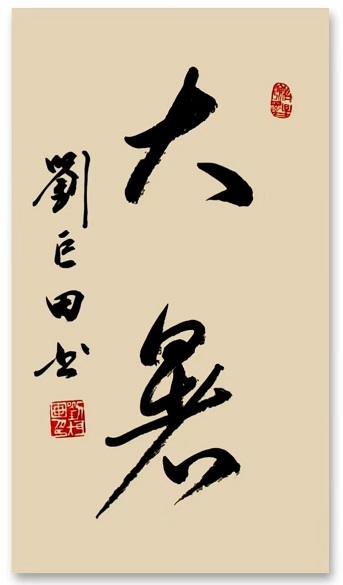 大暑
劉巨田书